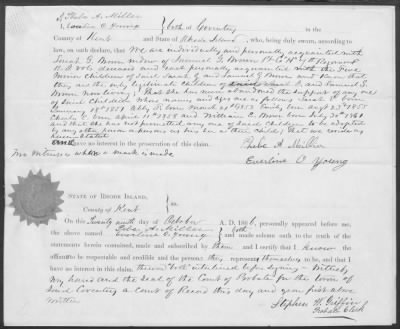 I, Phebe A. Miller
Everline O. Young } both of Coventry in the
County of Kent and State of Rhode Island, who, being duly sworn, according to
law, on oath declare, that We are individually and personally acquainted with
Sarah G. Brown widow of Samuel G. Brown
R. I. Vols deceased and and personally acquainted with the Five
Minor Children of Said Sarah G and Samuel G Brown and know that
they are the only legitimate children of Said Sarah G, and Samuel G
Brown now living. That She has never abandoned the Support of any one
of Said Children whose names and ages are as follows Sarah E. born
1851 Abby H. born March 1853 born Sept 25th 1855
Charles E. born April 11th 1858 and William E. Brown born July 30th 1861
and that She has not permitted any one of Said Children to be adopted
by any other person or persons as his her or their Child; that we reside as
above Stated
and have no interest in the prosecution of this claim.
Two witnesses where a mark is made. Phebe A. Miller
Everline O. Young
STATE OF RHODE ISLAND,
County of Kent
On this Twenty ninth day of October A. D. 1866, personally appeared before me,
the above named Phebe A. Miller
Everline O. Young } both and made solemn oath to the truth of the
statements herein contained, made and subscribed by them and I certify that I know the
affiants to be respectable and credible and the person they represent themselves to be, and that I
have no interest in this claim. Witness
my hand and the Seal of the Court of Probate for the town of
Said Coventry a Court of Record this day and year first above
written
Stephen W. Griffin
Probate Clerk